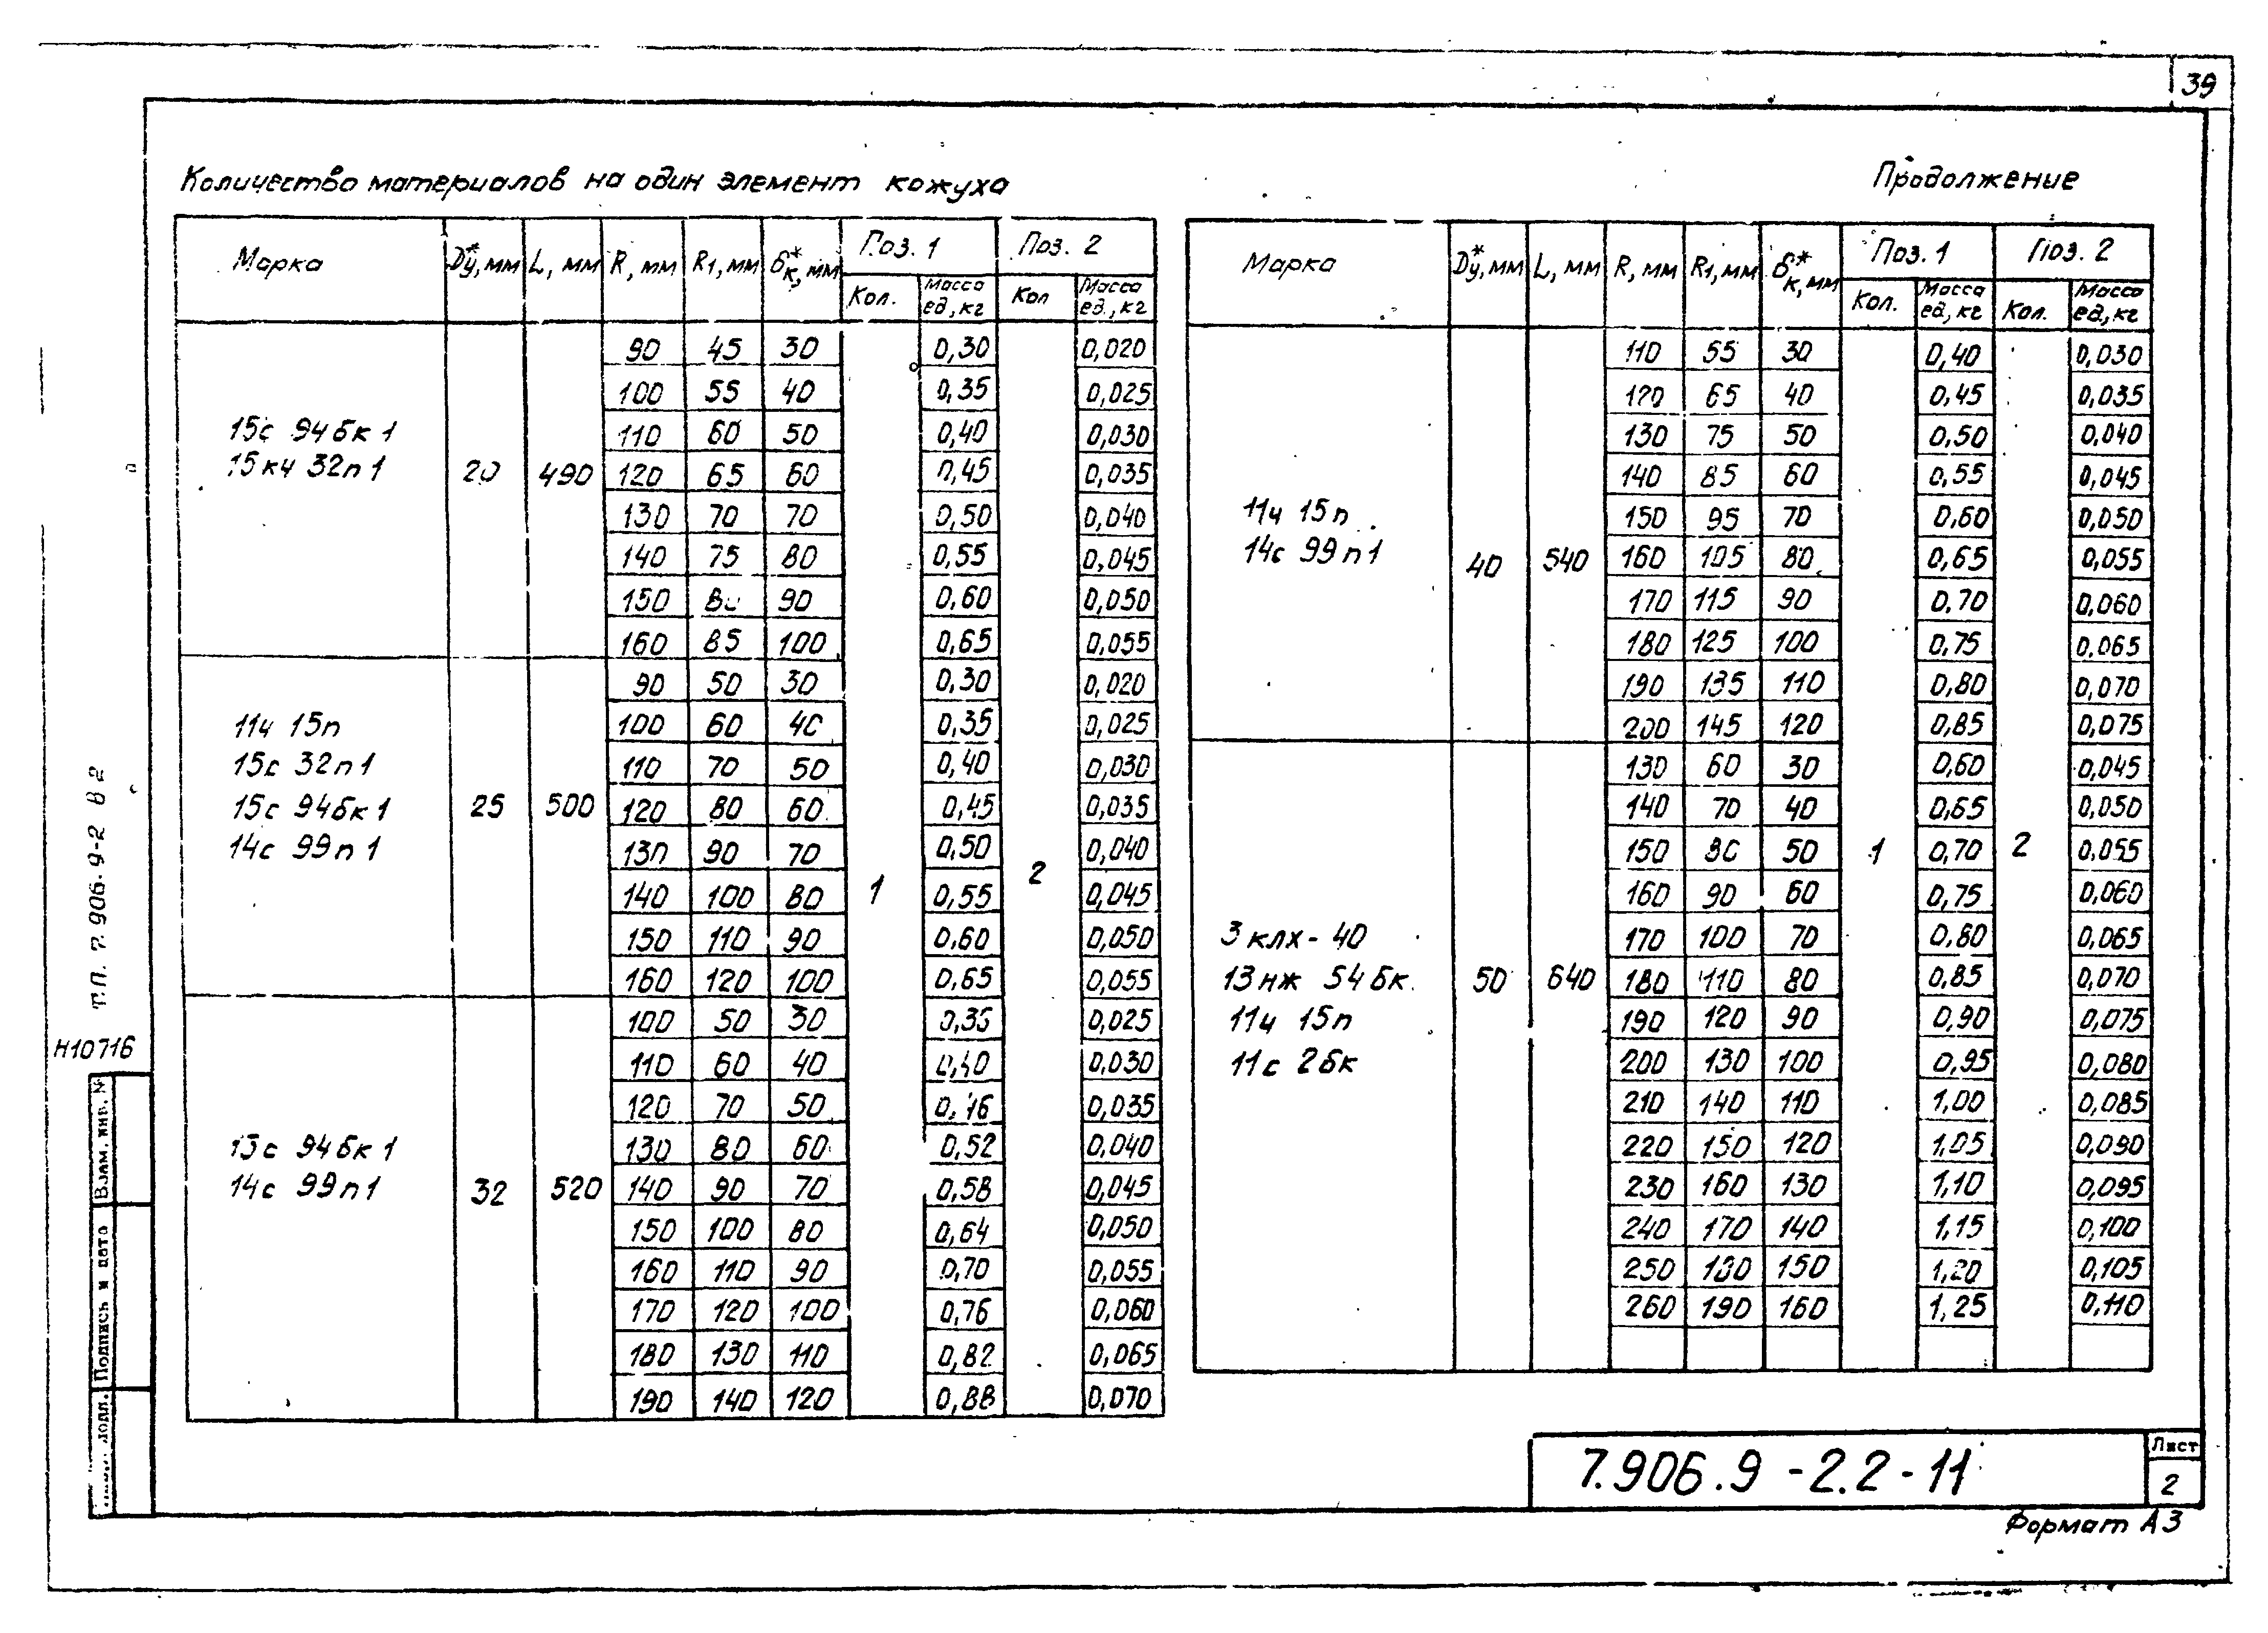 39
Количество материалов на один элемент кожуха
Марка Dу*, мм L, мм R, мм R1, мм δк*, мм Поз. 1 Поз. 2
Кол. Масса ед., кг Кол Масса ед., кг
15с 94бк1
15кч 32п1
20 490
90 45 30 0,30 0,020
100 55 40 0,35 0,025
110 60 50 0,40 0,030
120 65 60 0,45 0,035
130 70 70 0,50 0,040
140 75 80 0,55 0,045
150 80 90 0,60 0,050
160 85 100 0,65 0,055
11ч 15п
15с 32п1
15с 94бк1
14с 99п1
25 500
90 50 30 0,30 0,020
100 60 40 0,35 0,025
110 70 50 0,40 0,030
120 80 60 0,45 0,035
130 90 70 0,50 0,040
140 100 80 0,55 0,045
150 110 90 0,60 0,050
160 120 100 0,65 0,055
1 2
13с 94бк1
14с 99п1
32 520
100 50 30 0,025
110 60 40 0,40 0,030
120 70 50 0,46 0,035
130 80 60 0,52 0,040
140 90 70 0,58 0,045
150 100 80 0,64 0,050
160 110 90 0,70 0,055
170 120 100 0,76 0,060
180 130 110 0,82 0,065
190 140 120 0,88 0,070
Продолжение
Марка Dу*, мм L, мм R, мм R1, мм δк*, мм Поз. 1 Поз. 2
Кол. Масса ед., кг Кол. Масса ед., кг
11ч 15п
14с 99п1
40 540
110 55 30 0,40 0,030
120 65 40 0,45 0,035
130 75 50 0,50 0,040
140 85 60 0,55 0,045
150 95 70 0,60 0,050
160 105 80 0,65 0,055
170 115 90 0,70 0,060
180 125 100 0,75 0,065
190 135 110 0,80 0,070
200 145 120 0,85 0,075
3клх-40
13нж 54бк
11ч 15п
11с 2бк
50 640
130 60 30 0,60 0,045
140 70 40 0,65 0,050
150 80 50 0,70 0,055
160 90 60 0,75 0,060
170 100 70 0,80 0,065
180 110 80 0,85 0,070
190 120 90 0,90 0,075
200 130 100 0,95 0,080
210 140 110 1,00 0,085
220 150 120 1,05 0,090
230 160 130 1,10 0,095
240 170 140 1,15 0,100
250 180 150 1,20 0,105
260 190 160 1,25 0,110
1 2
Т.П. 7.906.9-2 В 2
Н10716
Взам. инв. №
Подпись и дата
подл.
7.906.9-2.2-11
Лист
2
Формат А3